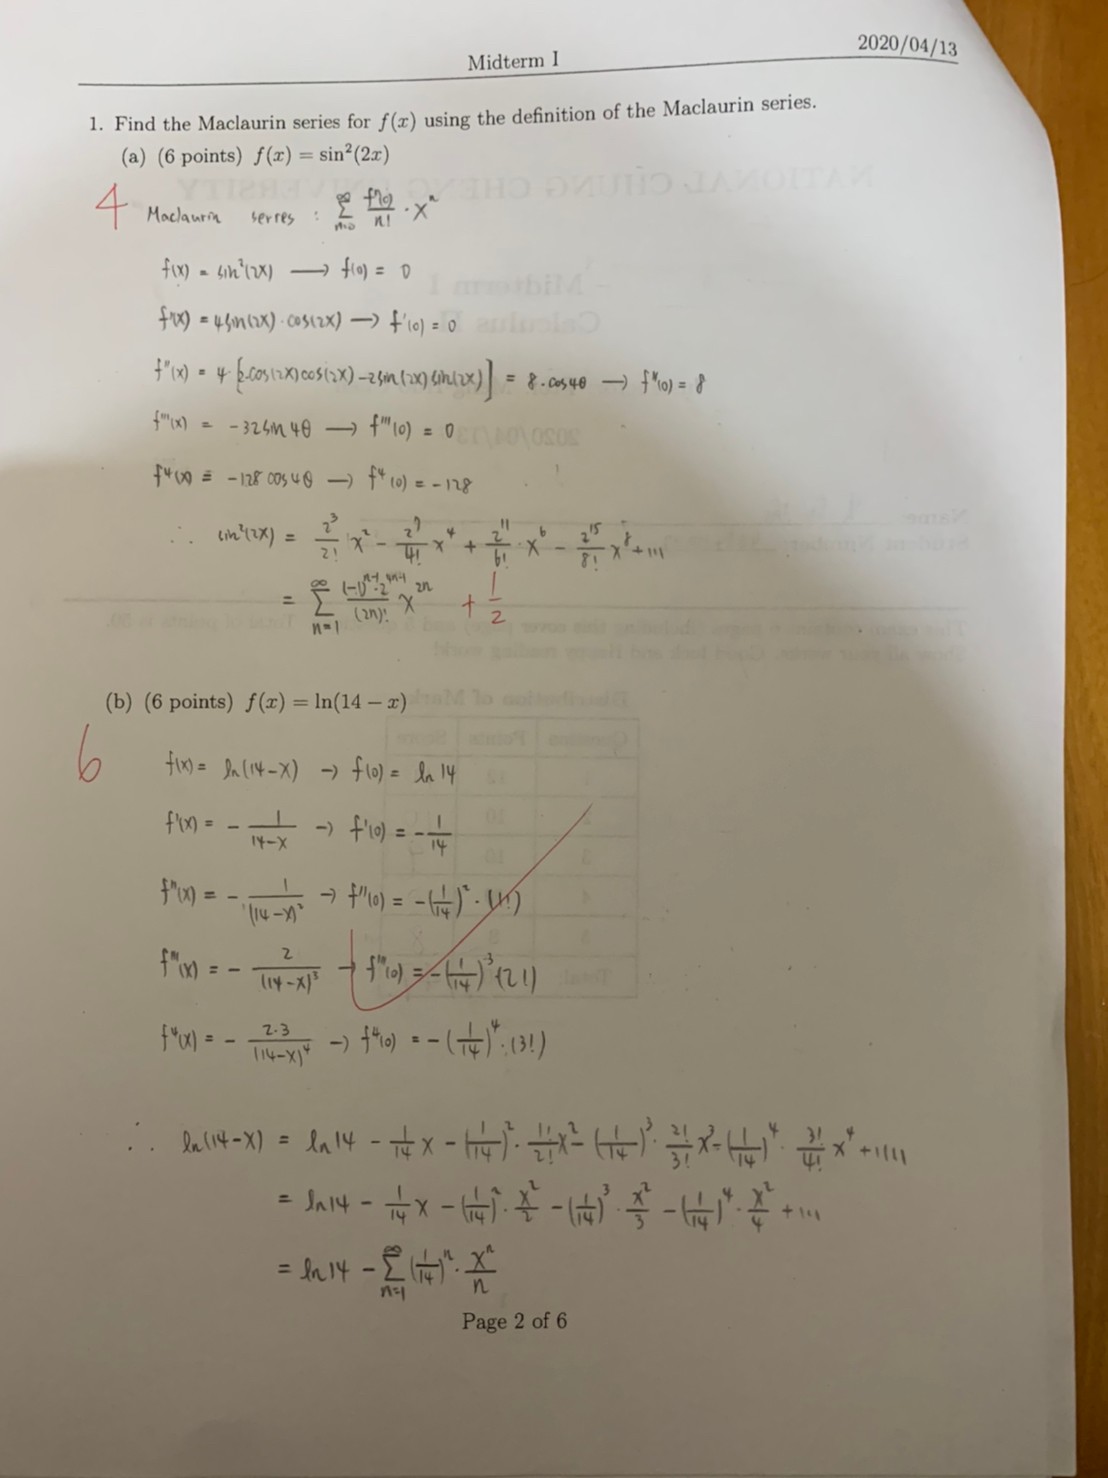 Midterm I
2020/04/13
1. Find the Maclaurin series for f(x) using the definition of the Maclaurin series.
(a) (6 points) f(x) = sin²(2x)
4
Maclaurin serres : ∑_{n=0}^{∞} fⁿ(0)/n! · xⁿ
f(x) = sin²(2x) ⟶ f(0) = 0
f'(x) = 4sin(2x)·cos(2x) → f'(0) = 0
f''(x) = 4·[2·cos(2x)cos(2x) − 2sin(2x)sin(2x)] = 8·cos4θ → f''(0) = 8
f'''(x) = −32sin4θ → f'''(0) = 0
f⁴(x) = −128cos4θ → f⁴(0) = −128
∴ sin²(2x) = 2³/2! x² − 2⁷/4! x⁴ + 2¹¹/6! · x⁶ − 2¹⁵/8! x⁸ + ...
= ∑_{n=1}^{∞} (−1)ⁿ⁻¹·2⁴ⁿ⁻¹/(2n)! x²ⁿ + 1/2
(b) (6 points) f(x) = ln(14 − x)
6
f(x) = ln(14−x) → f(0) = ln14
f'(x) = − 1/(14−x) → f'(0) = − 1/14
f''(x) = − 1/(14−x)² → f''(0) = −(1/14)²·(1!)
f'''(x) = − 2/(14−x)³ → f'''(0) = −(1/14)³(2!)
f⁴(x) = − 2·3/(14−x)⁴ → f⁴(0) = −(1/14)⁴·(3!)
∴ ln(14−x) = ln14 − 1/14 x − (1/14)²·1!/2! x² − (1/14)³·2!/3! x³ − (1/14)⁴·3!/4! x⁴ + ....
= ln14 − 1/14 x − (1/14)²·x²/2 − (1/14)³·x²/3 − (1/14)⁴·x²/4 + ...
= ln14 − ∑_{n=1}^{∞} (1/14)ⁿ·xⁿ/n
Page 2 of 6